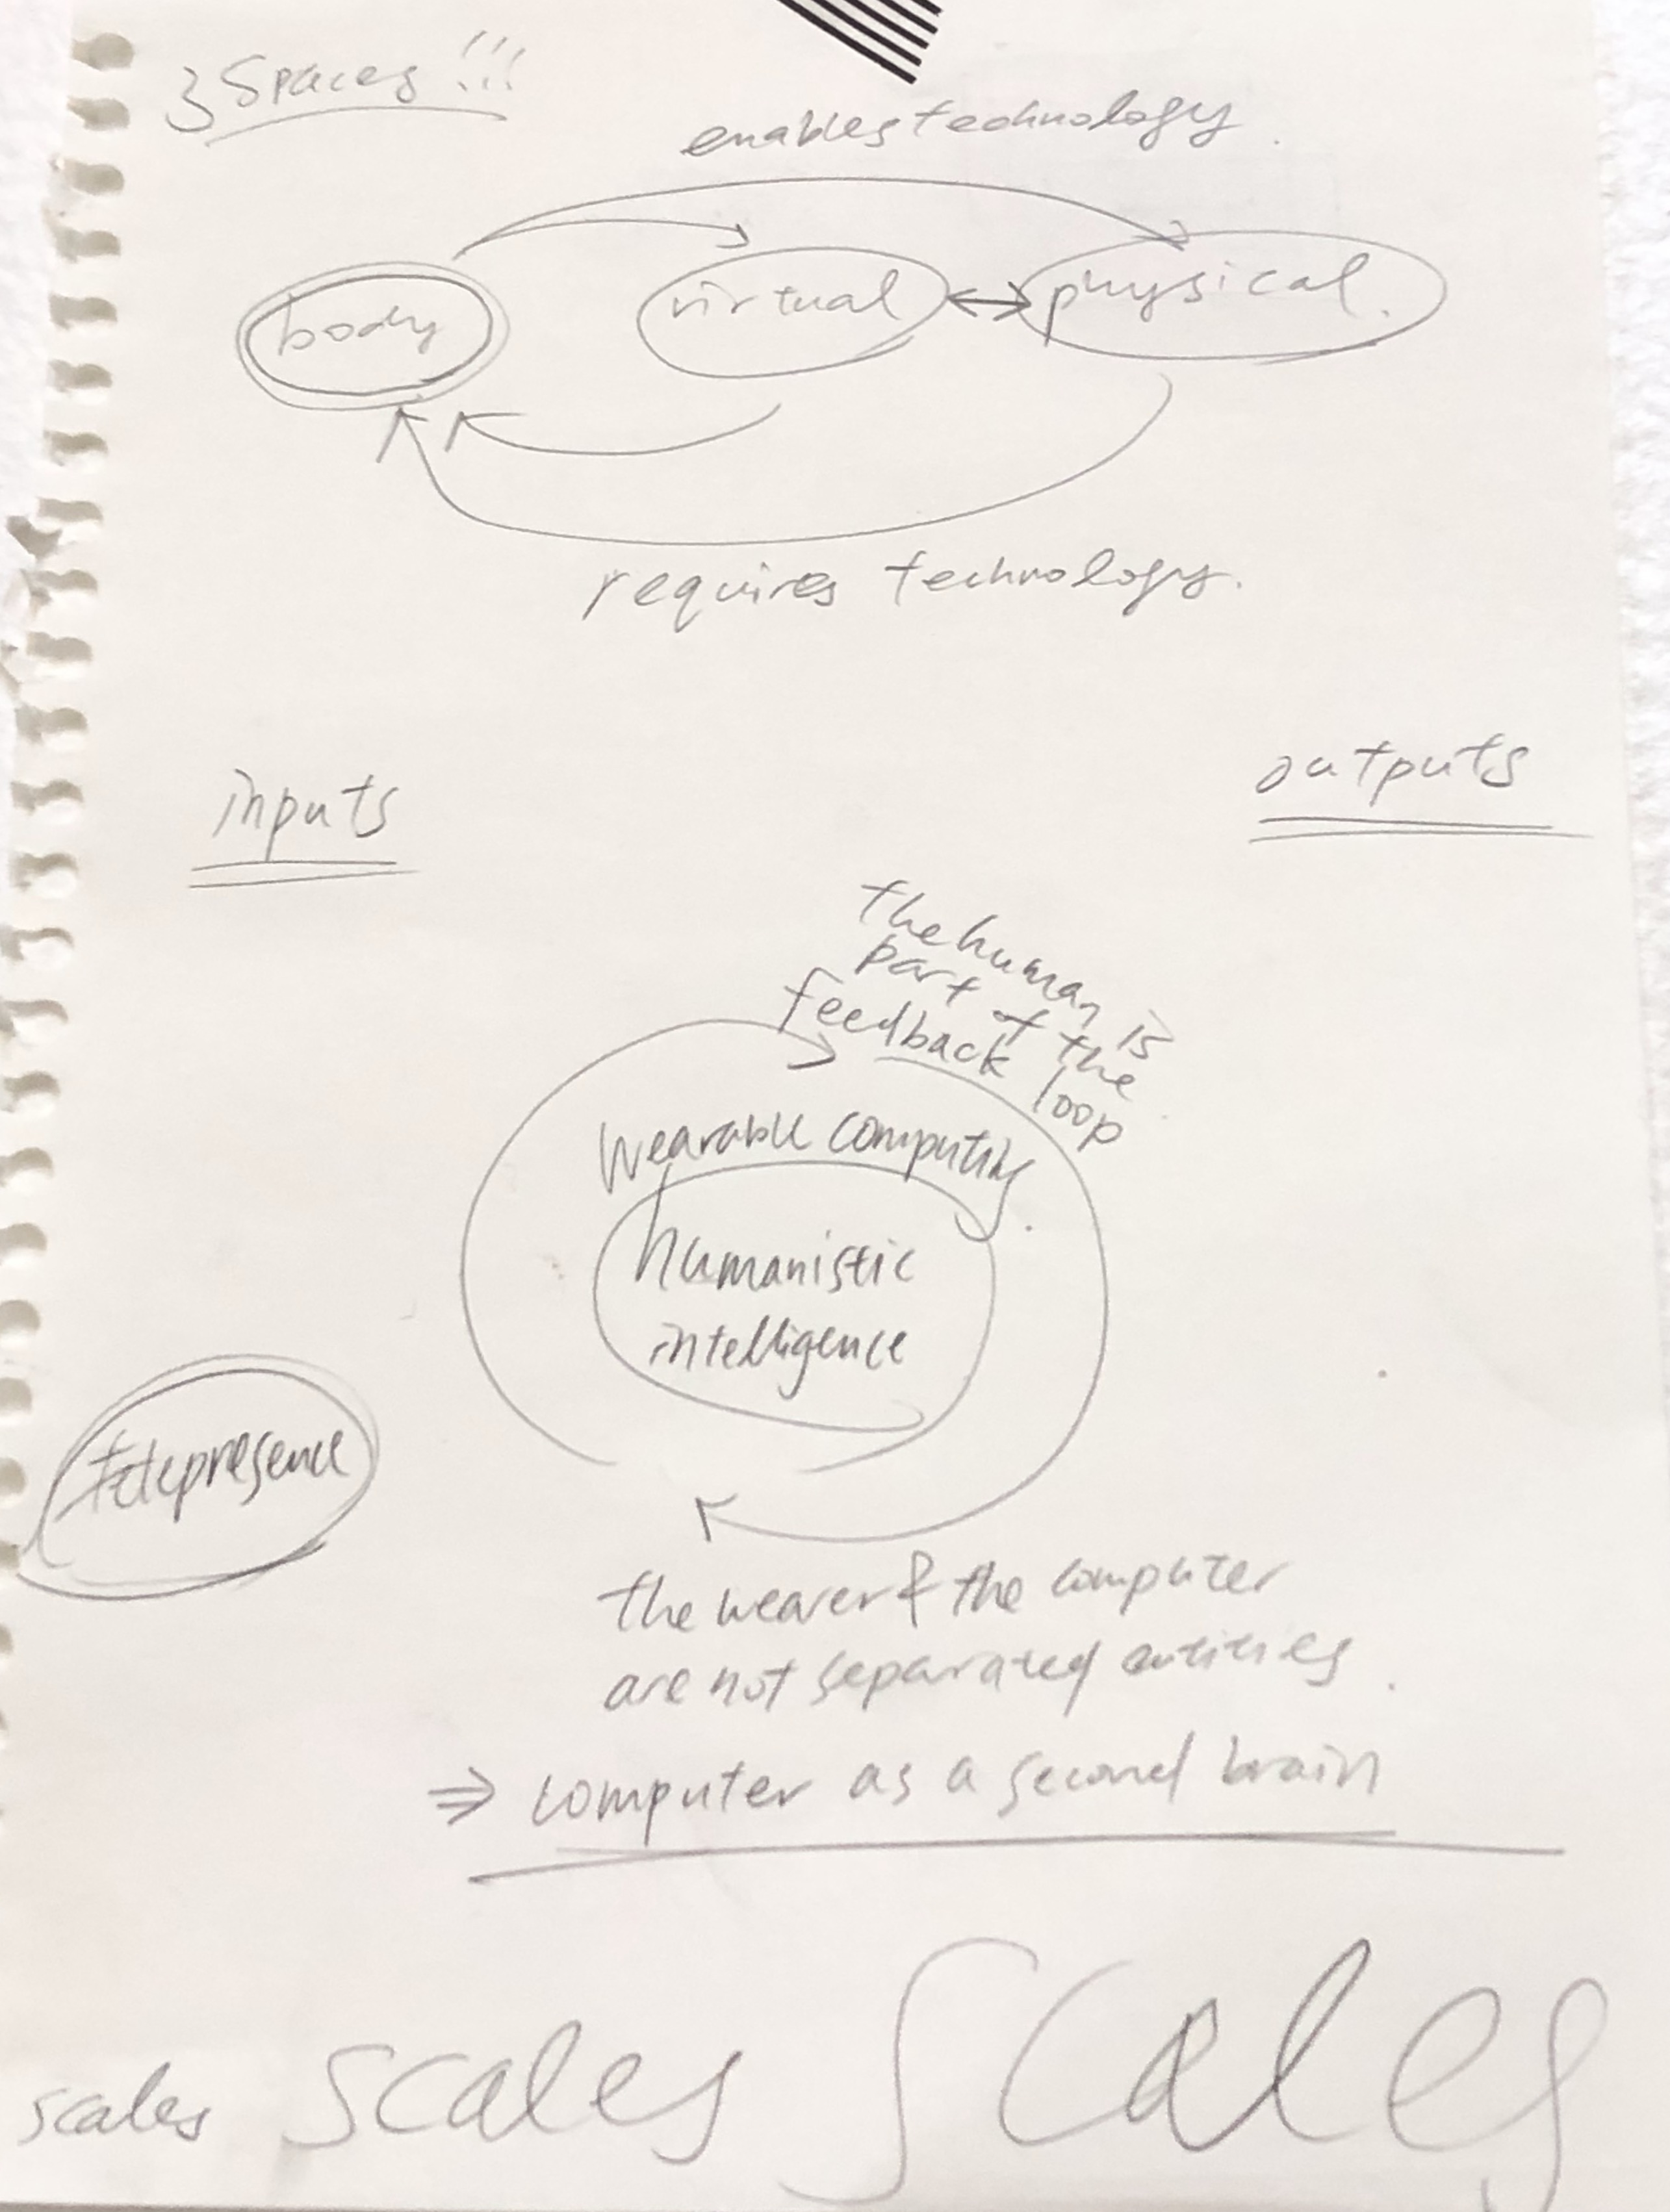 3 Spaces !!!
enables technology.
body
virtual
physical.
requires technology.
inputs
outputs
the human is
part of the
feedback loop
Wearable computing.
humanistic
intelligence
telepresence
the wearer & the computer
are not separated entities.
⇒ computer as a second brain
scales scales scales